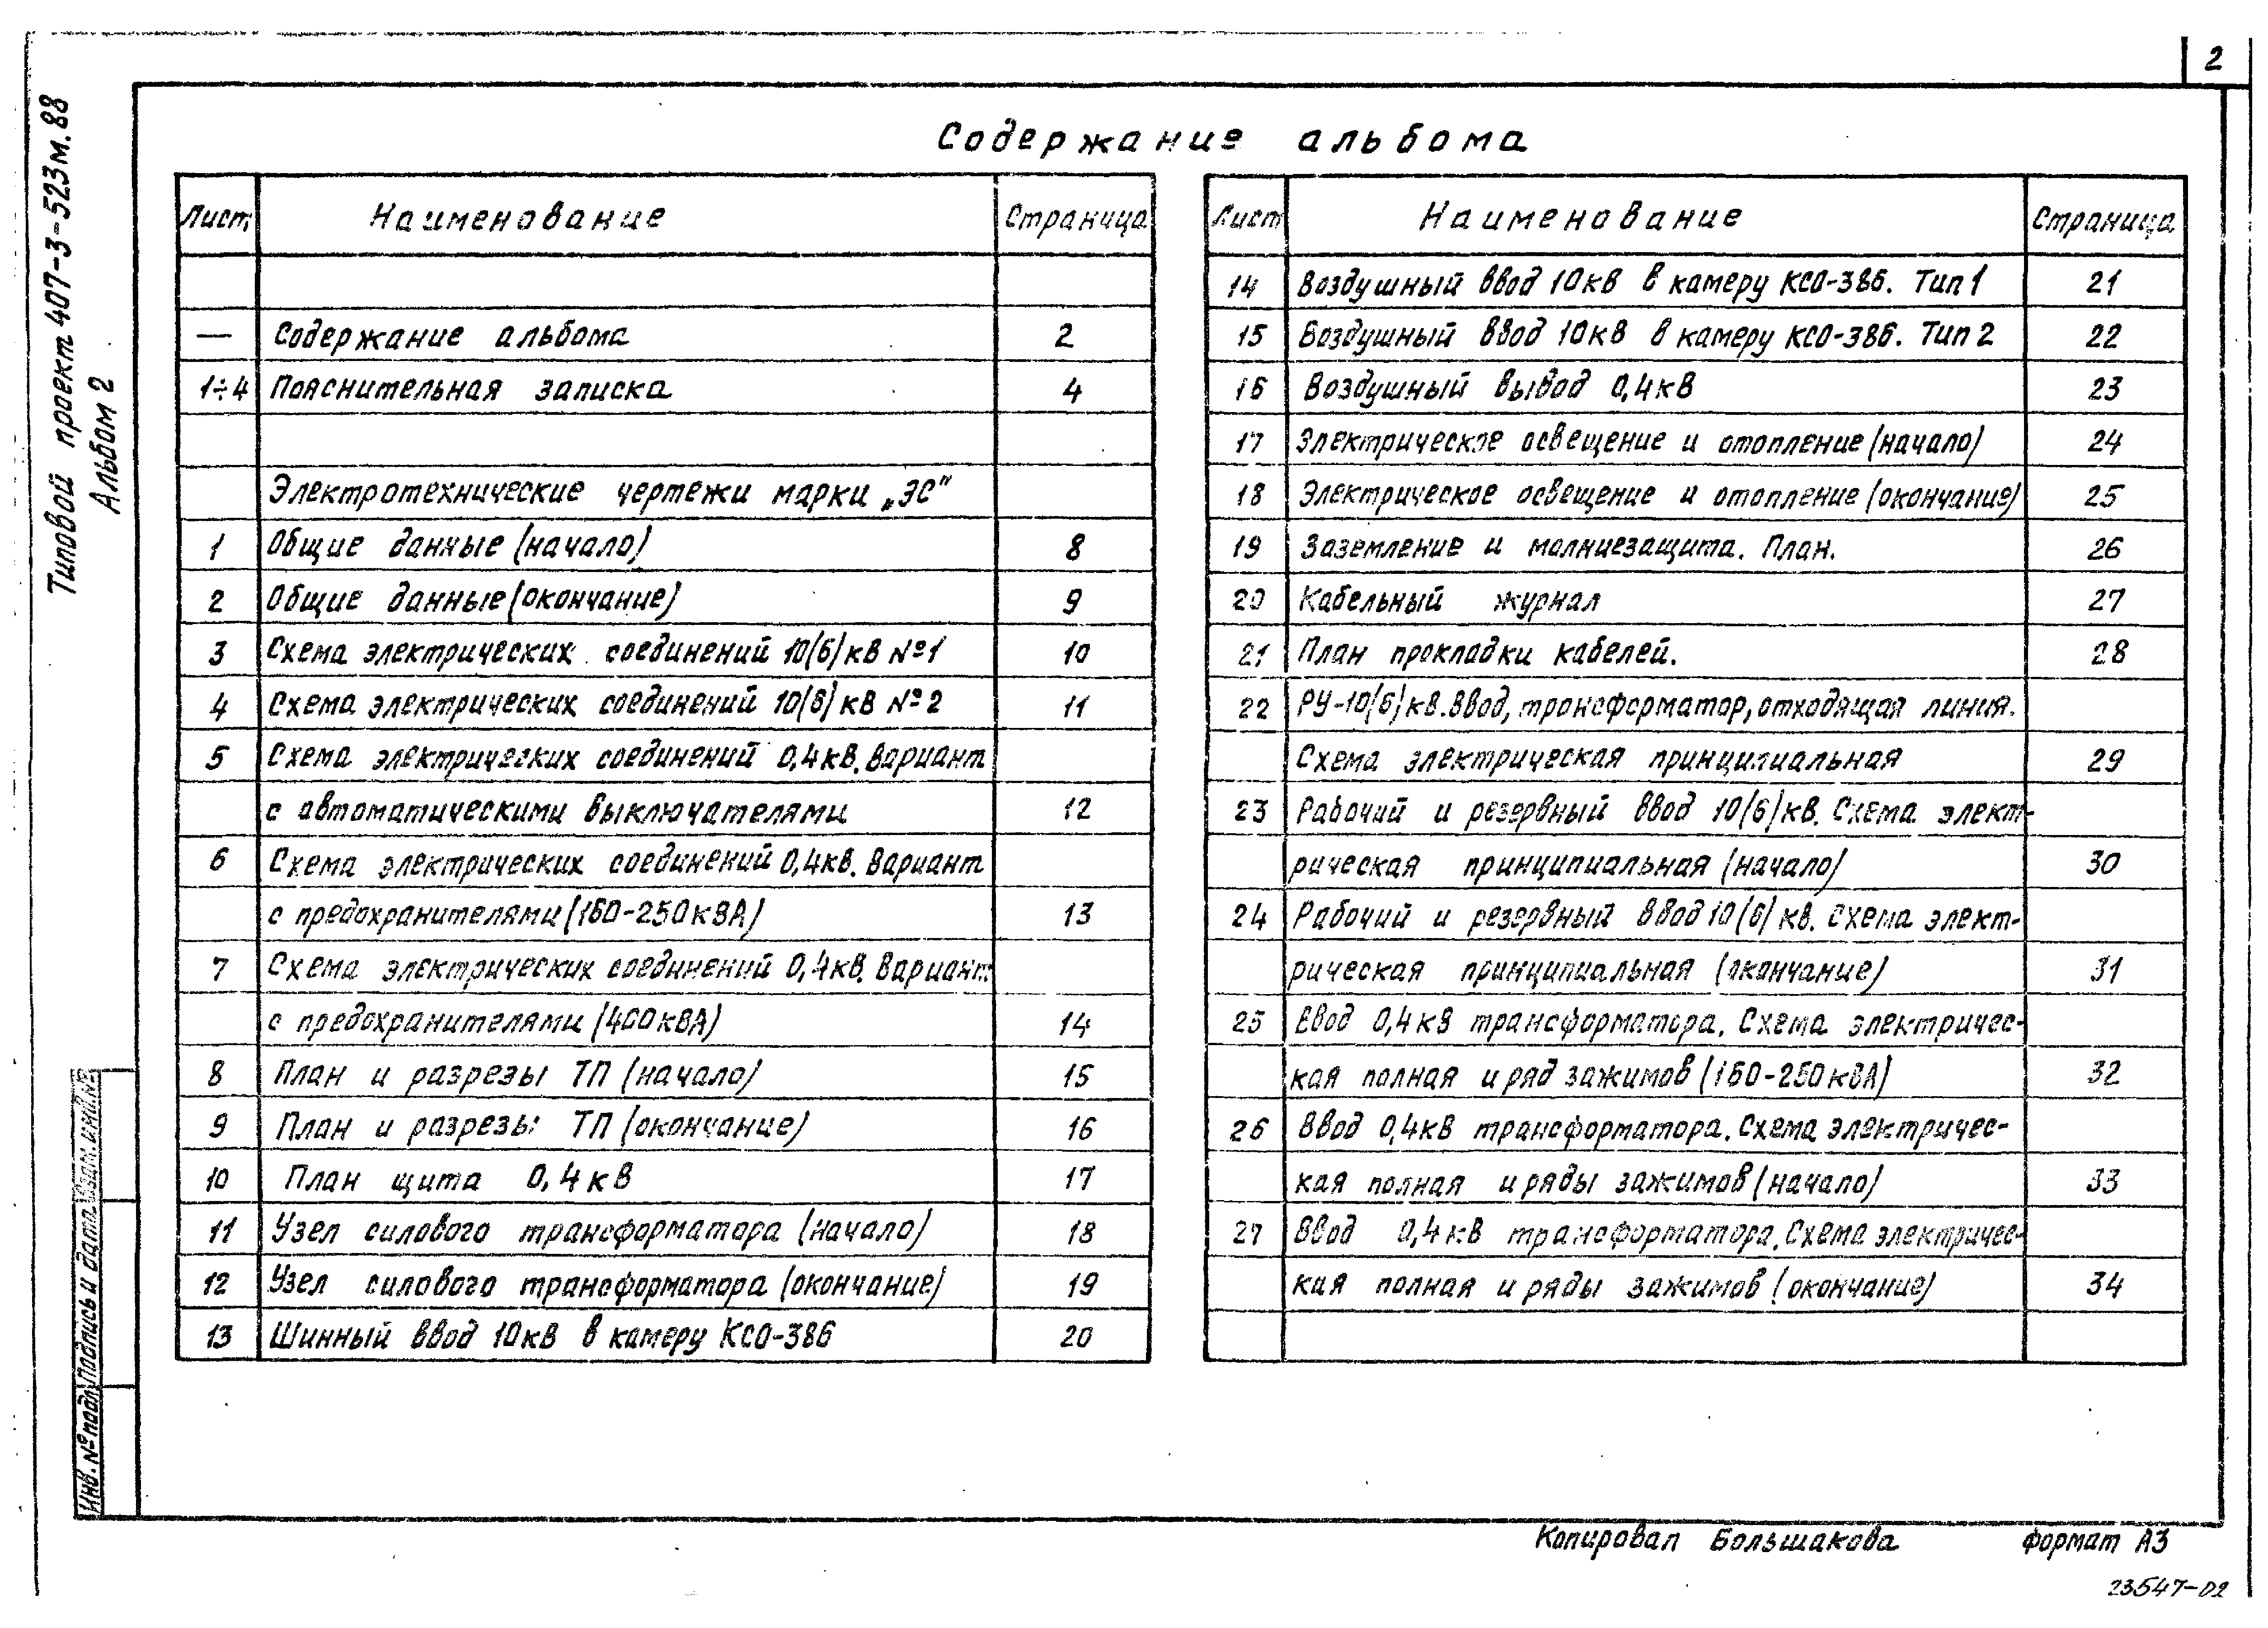 2
Типовой проект 407-3-523м.88
Альбом 2
Содержание альбома
Лист Наименование Страница
— Содержание альбома 2
1÷4 Пояснительная записка 4
Электротехнические чертежи марки „ЭС"
1 Общие данные (начало) 8
2 Общие данные (окончание) 9
3 Схема электрических соединений 10(6)кВ №1 10
4 Схема электрических соединений 10(6)кВ №2 11
5 Схема электрических соединений 0,4кВ. Вариант
с автоматическими выключателями 12
6 Схема электрических соединений 0,4кВ. Вариант
с предохранителями (160-250кВА) 13
7 Схема электрических соединений 0,4кВ. Вариант
с предохранителями (400кВА) 14
8 План и разрезы ТП (начало) 15
9 План и разрезы ТП (окончание) 16
10 План щита 0,4кВ 17
11 Узел силового трансформатора (начало) 18
12 Узел силового трансформатора (окончание) 19
13 Шинный ввод 10кВ в камеру КСО-386 20
Лист Наименование Страница
14 Воздушный ввод 10кВ в камеру КСО-386. Тип 1 21
15 Воздушный ввод 10кВ в камеру КСО-386. Тип 2 22
16 Воздушный вывод 0,4кВ 23
17 Электрическое освещение и отопление (начало) 24
18 Электрическое освещение и отопление (окончание) 25
19 Заземление и молниезащита. План. 26
20 Кабельный журнал 27
21 План прокладки кабелей. 28
22 РУ-10(6)кВ. Ввод, трансформатор, отходящая линия.
Схема электрическая принципиальная 29
23 Рабочий и резервный ввод 10(6)кВ. Схема элект-
рическая принципиальная (начало) 30
24 Рабочий и резервный ввод 10(6)кВ. Схема элект-
рическая принципиальная (окончание) 31
25 Ввод 0,4кВ трансформатора. Схема электричес-
кая полная и ряд зажимов (160-250кВА) 32
26 Ввод 0,4кВ трансформатора. Схема электричес-
кая полная и ряды зажимов (начало) 33
27 Ввод 0,4кВ трансформатора. Схема электричес-
кая полная и ряды зажимов (окончание) 34
Инв. № подл. Подпись и дата Взам. инв. №
Копировал Большакова формат А3
23547-02